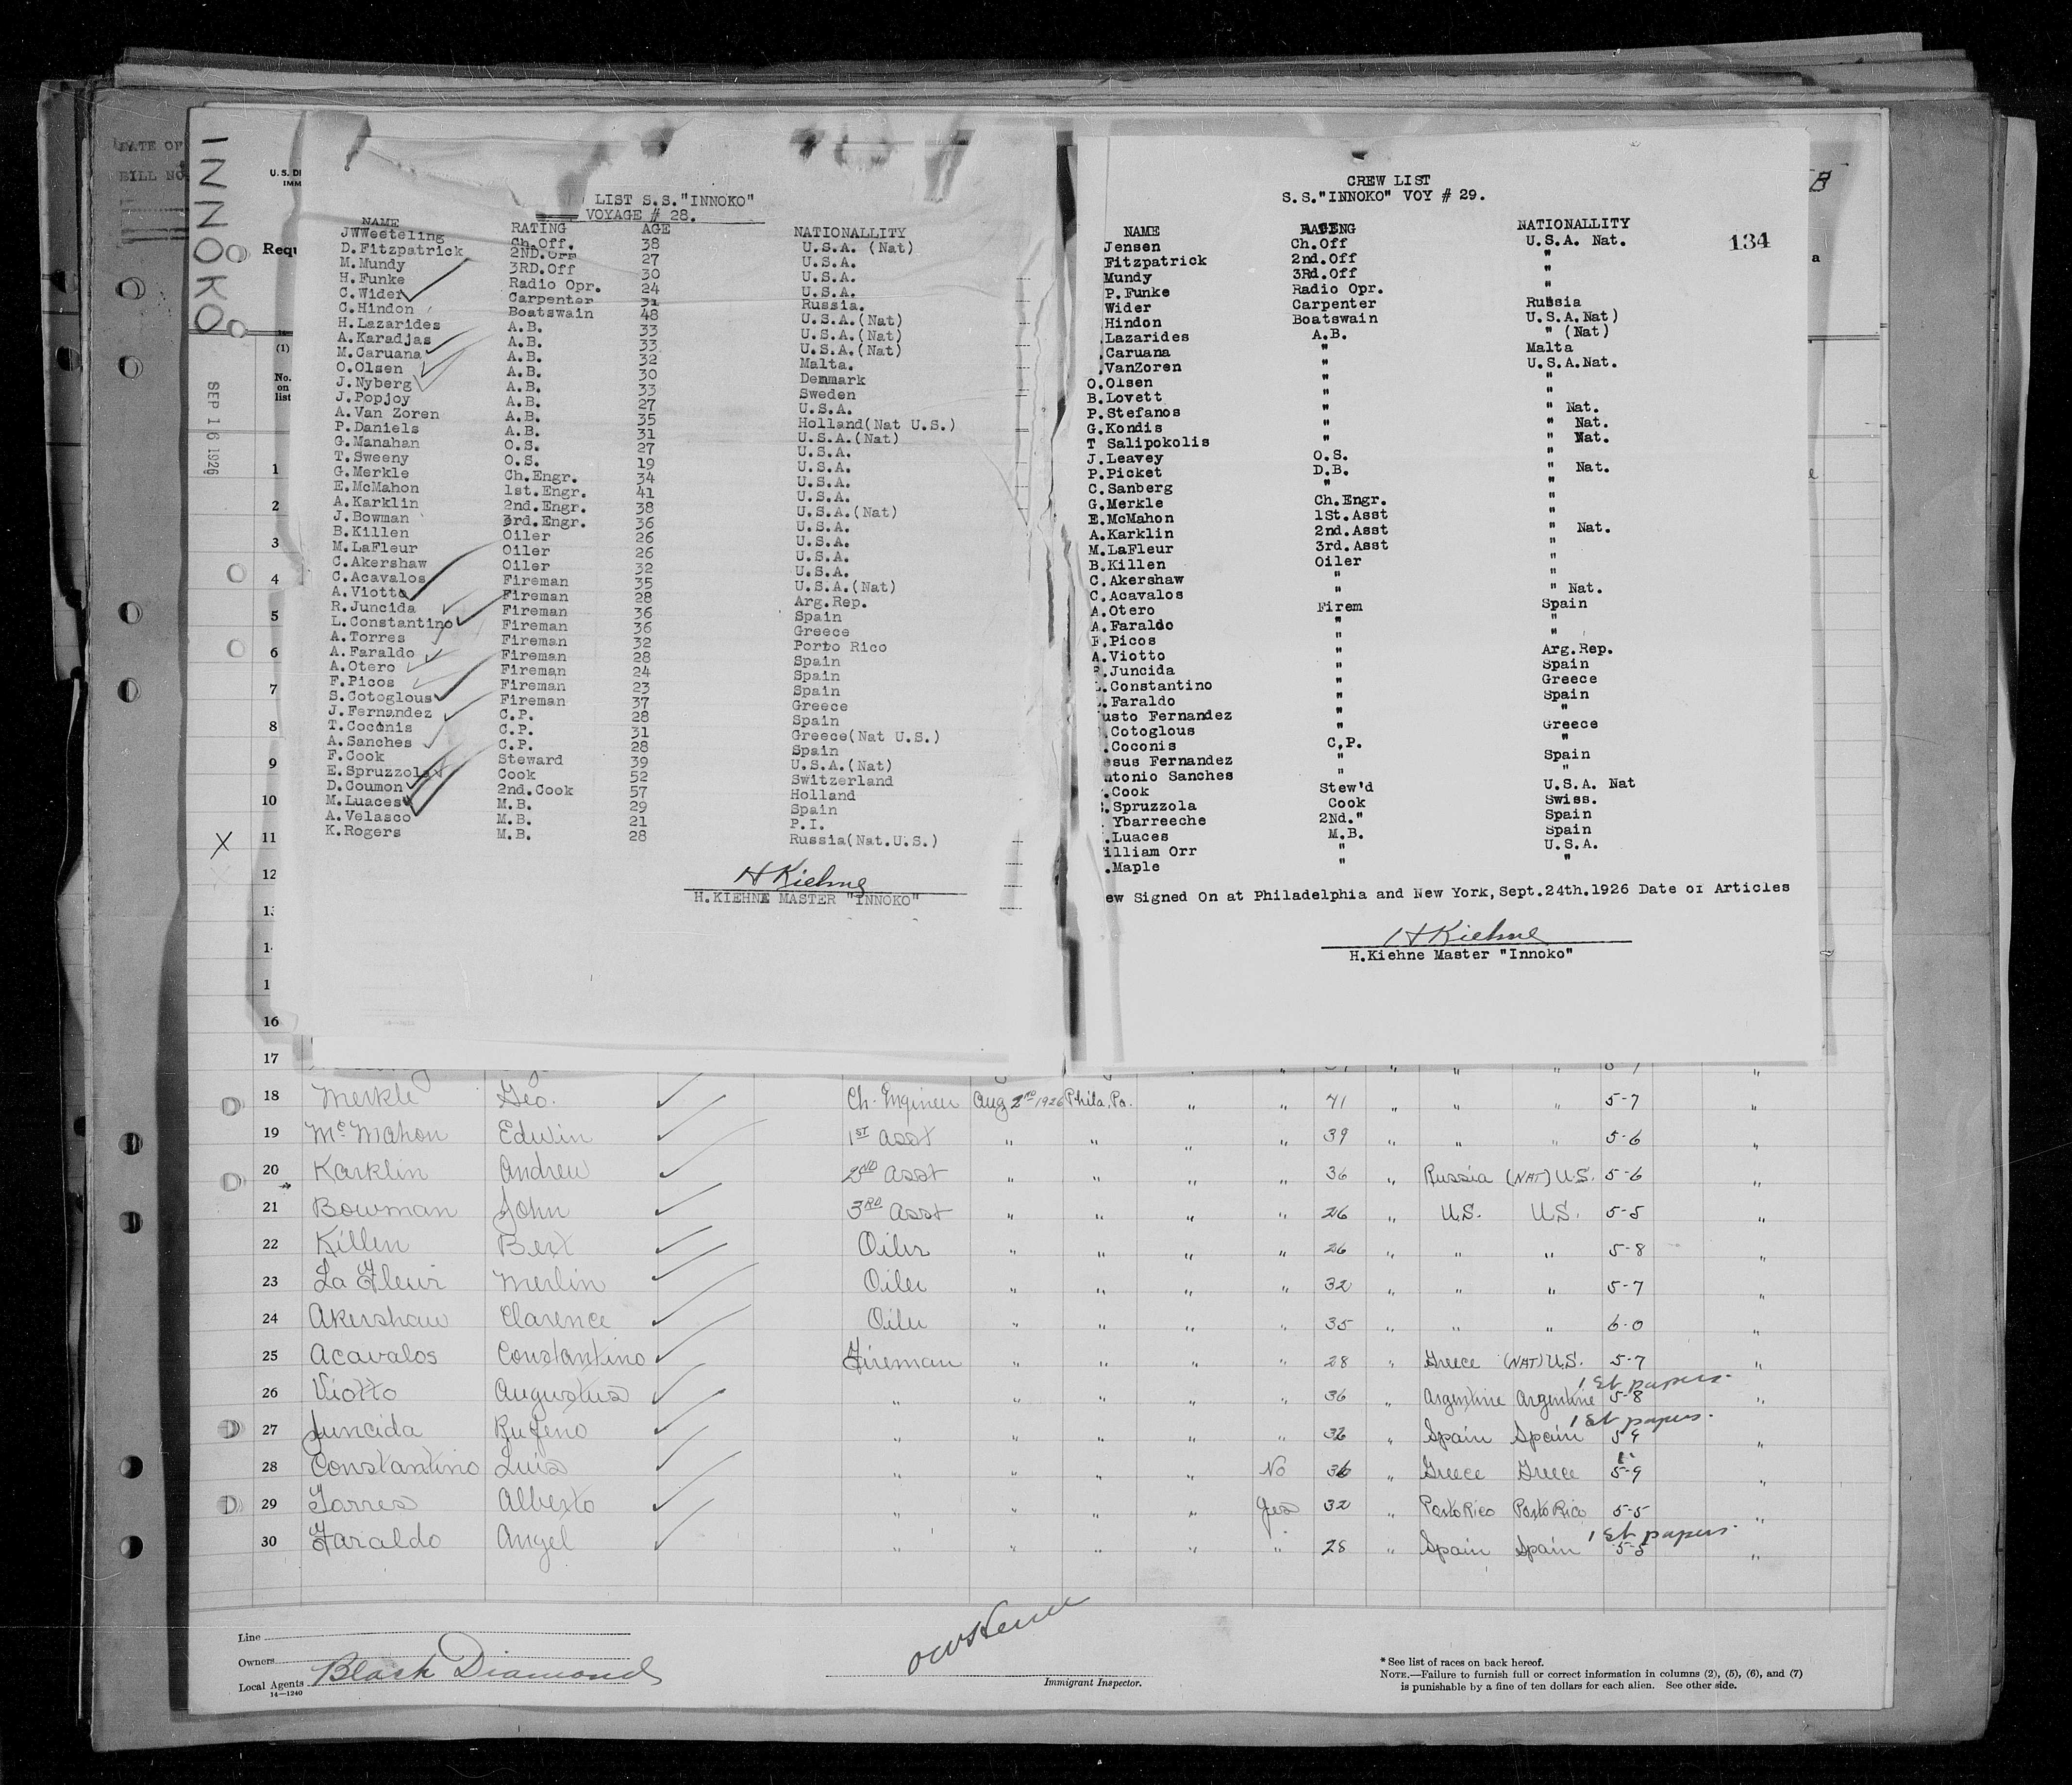 DATE OF
BILL NO.
INNOKO
SEP 16 1926
U.S. DE
IMM
Requ
(1)
No.
on
list
LIST S.S."INNOKO"
VOYAGE # 28.
NAME RATING AGE NATIONALLITY
JWWeeteling Ch.Off. 38 U.S.A. (Nat)
D.Fitzpatrick 2ND.Off 27 U.S.A.
M.Mundy 3RD.Off 30 U.S.A.
H.Funke Radio Opr. 24 U.S.A.
C.Wider Carpenter 31 Russia.
C.Hindon Boatswain 48 U.S.A.(Nat)
H.Lazarides A.B. 33 U.S.A.(Nat)
A.Karadjas A.B. 33 U.S.A.(Nat)
M.Caruana A.B. 32 Malta.
O.Olsen A.B. 30 Denmark
J.Nyberg A.B. 33 Sweden
J.Popjoy A.B. 27 U.S.A.
A.Van Zoren A.B. 35 Holland(Nat U.S.)
P.Daniels A.B. 31 U.S.A.(Nat)
G.Manahan O.S. 27 U.S.A.
T.Sweeny O.S. 19 U.S.A.
G.Merkle Ch.Engr. 34 U.S.A.
E.McMahon 1st.Engr. 41 U.S.A.
A.Karklin 2nd.Engr. 38 U.S.A.(Nat)
J.Bowman 3rd.Engr. 36 U.S.A.
B.Killen Oiler 26 U.S.A.
M.LaFleur Oiler 26 U.S.A.
C.Akershaw Oiler 32 U.S.A.
C.Acavalos Fireman 35 U.S.A.(Nat)
A.Viotto Fireman 28 Arg.Rep.
R.Juncida Fireman 36 Spain
L.Constantino Fireman 36 Greece
A.Torres Fireman 32 Porto Rico
A.Faraldo Fireman 28 Spain
A.Otero Fireman 24 Spain
F.Picos Fireman 23 Spain
S.Cotoglous Fireman 37 Greece
J.Fernandez C.P. 28 Spain
T.Coconis C.P. 31 Greece(Nat U.S.)
A.Sanches C.P. 28 Spain
F.Cook Steward 39 U.S.A.(Nat)
E.Spruzzola Cook 52 Switzerland
D.Coumon 2nd.Cook 57 Holland
M.Luaces M.B. 29 Spain
A.Velasco M.B. 21 P.I.
K.Rogers M.B. 28 Russia(Nat.U.S.)
H Kiehne
H.KIEHNE MASTER "INNOKO"
B
134
a
CREW LIST
S.S."INNOKO" VOY # 29.
NAME RATING NATIONALLITY
Jensen Ch.Off U.S.A. Nat.
Fitzpatrick 2nd.Off "
Mundy 3Rd.Off "
P.Funke Radio Opr. "
Wider Carpenter Russia
Hindon Boatswain U.S.A.Nat)
Lazarides A.B. " (Nat)
.Caruana " Malta
.VanZoren " U.S.A.Nat.
O.Olsen " "
B.Lovett " "
P.Stefanos " " Nat.
G.Kondis " " Nat.
T Salipokolis " " Nat.
J.Leavey O.S. "
P.Picket D.B. " Nat.
C.Sanberg " "
G.Merkle Ch.Engr. "
E.McMahon 1St.Asst "
A.Karklin 2nd.Asst " Nat.
M.LaFleur 3rd.Asst "
B.Killen Oiler "
C.Akershaw " "
C.Acavalos " " Nat.
A.Otero Firem Spain
A.Faraldo " "
F.Picos " "
A.Viotto " Arg.Rep.
R.Juncida " Spain
L.Constantino " Greece
.Faraldo " Spain
usto Fernandez " "
.Cotoglous " Greece
.Coconis C.P. "
esus Fernandez " Spain
ntonio Sanches " "
.Cook Stew'd U.S.A. Nat
.Spruzzola Cook Swiss.
Ybarreeche 2Nd." Spain
.Luaces M.B. Spain
illiam Orr " U.S.A.
.Maple " "
ew Signed On at Philadelphia and New York,Sept.24th.1926 Date of Articles
H Kiehne
H.Kiehne Master "Innoko"
1
2
3
4
5
6
7
8
9
10
X 11
12
13
14
1
16
17
18 Merkle Geo. Ch. Engineer Aug 2ND 1926 Phila, Pa. " " 41 " " " 5-7 "
19 McMahon Edwin 1ST Asst " " " " 39 " " " 5-6 "
20 Karklin Andrew 2ND Asst " " " " 36 " Russia (NAT) U.S. 5-6 "
21 Bowman John 3RD Asst " " " " 26 " U.S. U.S. 5-5 "
22 Killen Bert Oiler " " " " 26 " " " 5-8 "
23 La Fleur Merlin Oiler " " " " 32 " " " 5-7 "
24 Akershaw Clarence Oiler " " " " 35 " " " 6-0 "
25 Acavalos Constantino Fireman " " " " 28 " Greece (NAT) U.S. 5-7 "
26 Viotto Augustus " " " " " 36 " Argentine Argentine 1st papers. 5-8 "
27 Juncida Rufeno " " " " " 36 " Spain Spain 1st papers. 5-9 "
28 Constantino Luis " " " " No 36 " Greece Greece 5-9 "
29 Torres Alberto " " " " Yes 32 " Porto Rico Porto Rico 5-5 "
30 Faraldo Angel " " " " " 28 " Spain Spain 1st papers. 5-5 "
Line
Owners
Local Agents Black Diamond
14—1240
Immigrant Inspector.
* See list of races on back hereof.
NOTE.—Failure to furnish full or correct information in columns (2), (5), (6), and (7)
is punishable by a fine of ten dollars for each alien. See other side.